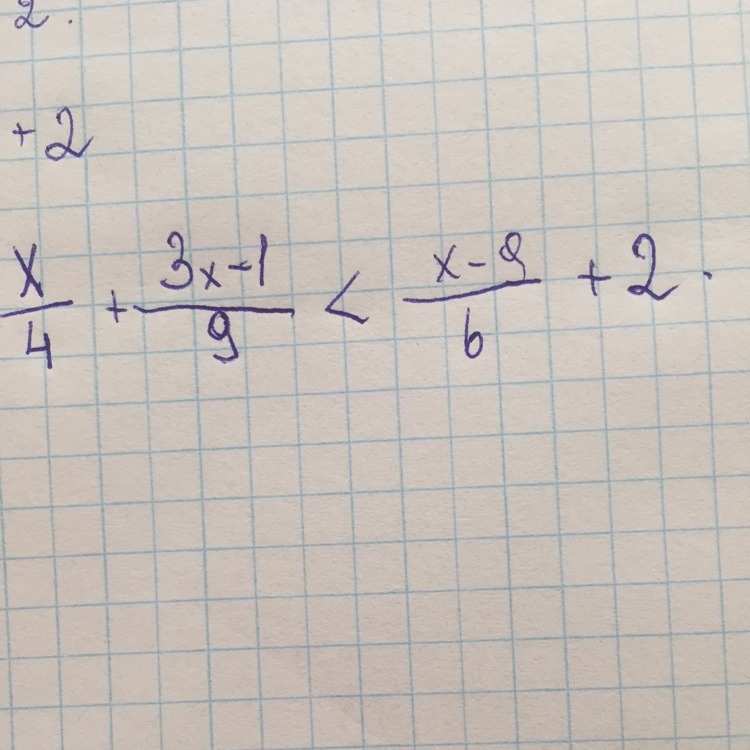 2.
+2
x/4 + (3x-1)/9 < (x-9)/6 + 2.